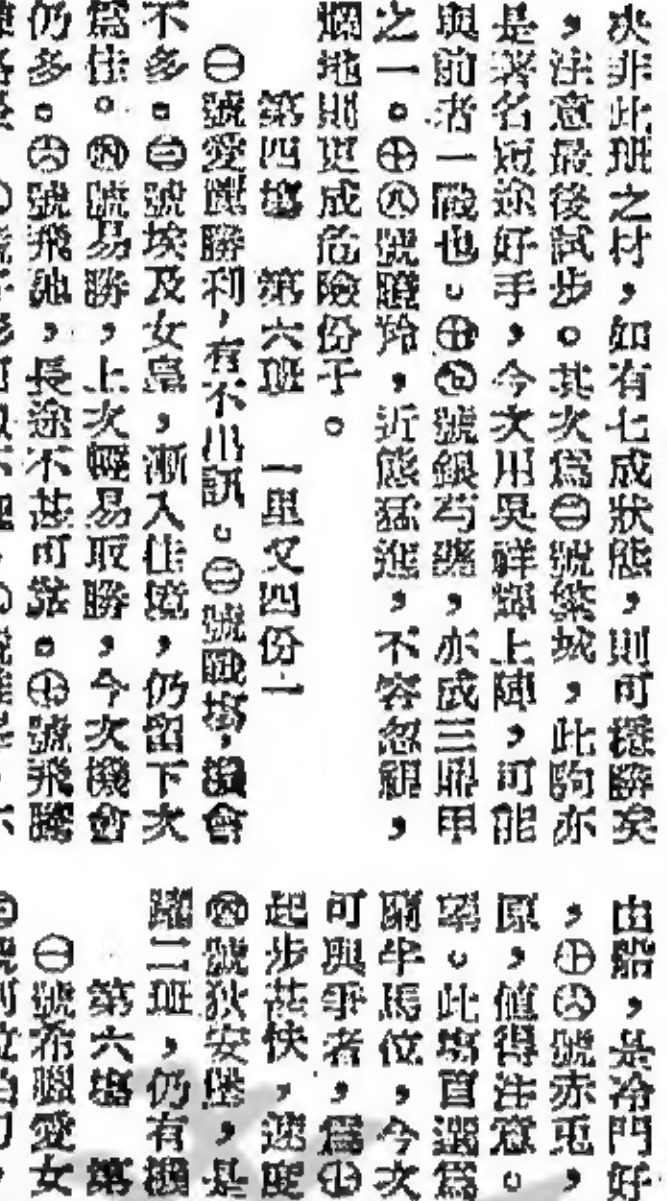 次非此班之材，如有七成狀態，則可穩勝矣
，注意最後試步。其次為㊁號築城，此駒亦
是著名短途好手，今次用吳祥輝上陣，可能
與前者一戰也。㊉㊈號銀芍藥，亦成三鼎甲
之一。㊉㊇號勝玲，近態猛進，不容忽視，
爛地則更成危險份子。
第四場　第六班　一里又四份一
㊀號愛麗勝利，有不出訊。㊁號戰塲，機會
不多。㊂號埃及女皇，漸入佳境，仍留下次
為佳。㊃號易勝，上次輕易取勝，今次機會
仍多。㊅號飛，長途不甚可靠。㊆號飛騰
由船，是冷門好
，㊉㊅號赤兎，
原，值得注意。
。此塲首選為
半馬位，今次
可與爭者，為㊉
起步甚快，速度
㊃號狄安堡，是
二班，仍有
第六場　第
㊀號希臘愛女